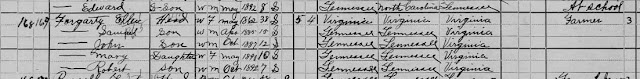 — Edward G-Son W m May 1892 8 S Tennessee North Carolina Tennessee At School
168 169 Fogarty Ellen Head W F May 1862 38 5 4 Virginia Virginia Virginia Farmer 3
— Samuel Son W m Apr 1885 15 S Tennessee Tennessee Virginia
— John Son W m Oct 1887 12 S Tennessee Tennessee Virginia
— Mary Daughter W F May 1890 10 S Tennessee Tennessee Virginia
— Robert Son W m Oct 1892 7 S Tennessee Tennessee Virginia